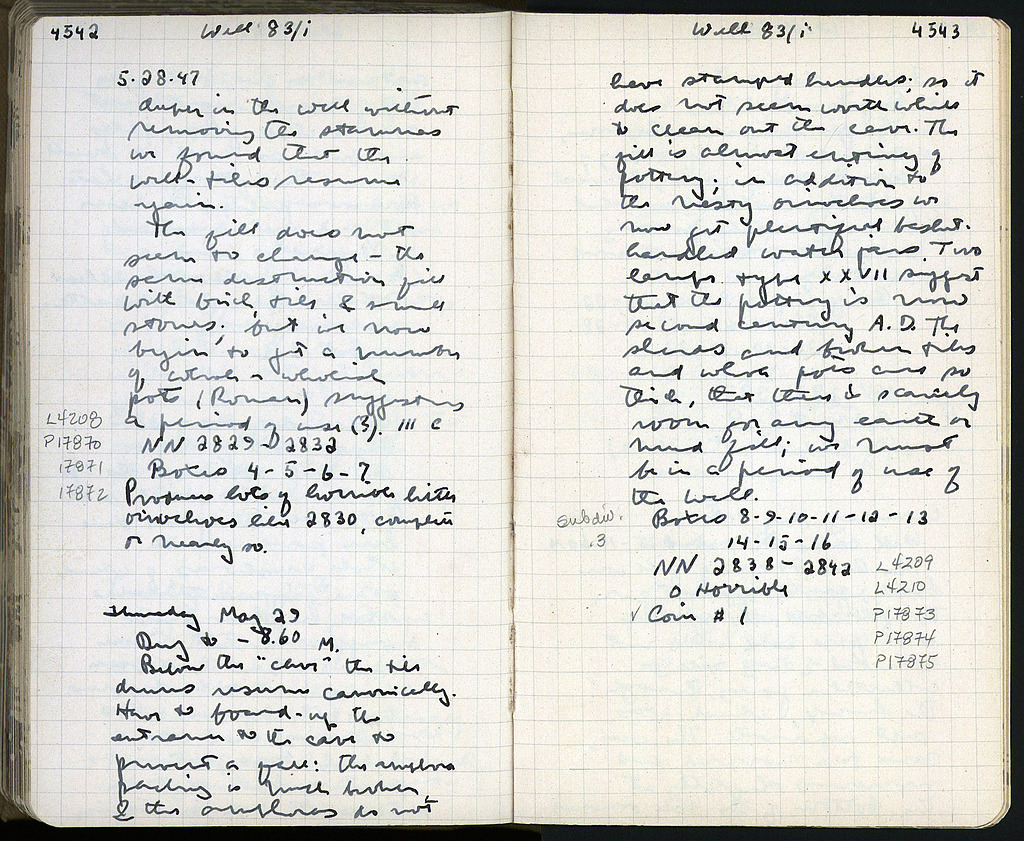 4542
Well 83/i
5.28.47
deeper in the well without
removing the stamnos
we found that the
well-tiles resume
again.
The fill does not
seem to change - the
same destruction fill
with brick tiles & small
stones; but we now
begin to get a number
of whole - wholeish
pots (Roman) suggesting
a period of use (3). III C
L4208
P17870
17871
17872
NN 2829-2832
Boxes 4-5-6-7
Produces lots of horrible little
oinochoes like 2830, complete
or nearly so.
Thursday May 29
Dug to -8.60 M.
Below the "cave" the tile
drums resume canonically.
Have to board-up the
entrance to the cave to
prevent a fall: the amphora
packing is much broken,
& the amphoras do not
Well 83/i
4543
have stamped handles; so it
does not seem worth while
to clean out the cave. The
fill is almost entirely of
pottery; in addition to
the nasty oinochoes we
now get plentiful basket-
handled water jars. Two
lamps type XXVII suggest
that the pottery is now
second century A.D. The
sherds and broken tiles
and whole pots are so
thick, that there is scarcely
room for any earth or
mud fill; we must
be in a period of use of
the well.
subdiv.
.3
Boxes 8-9-10-11-12-13
14-15-16
NN 2838-2842
0 Horrible
√ Coin # 1
L4209
L4210
P17873
P17874
P17875